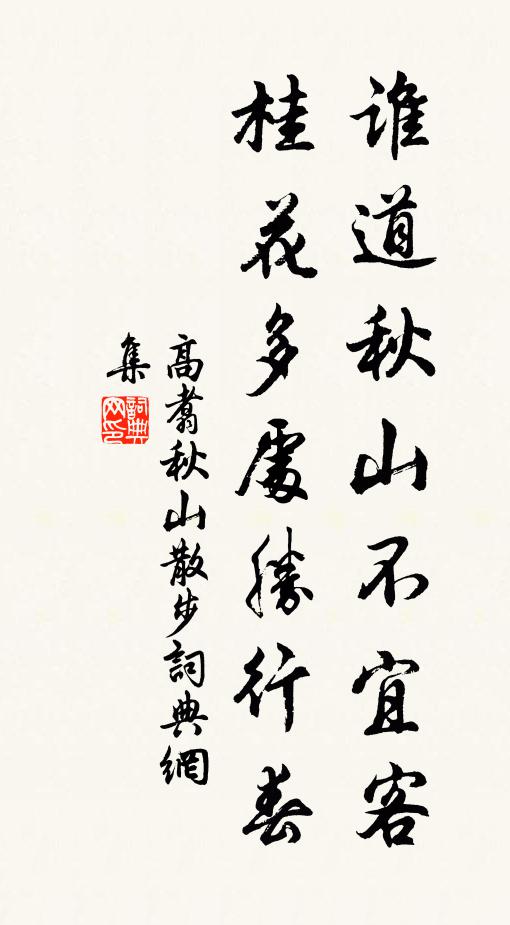 谁道秋山不宜客
桂花多處勝行春
高翥秋山散步詞典網
集
詞典
网印